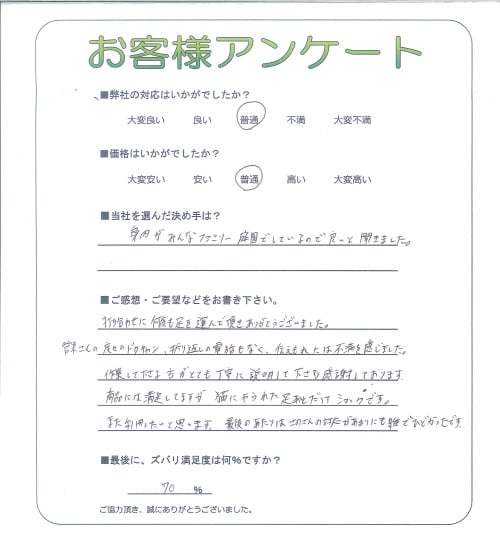 お客様アンケート
■弊社の対応はいかがでしたか？
大変良い 良い 普通 不満 大変不満
■価格はいかがでしたか？
大変安い 安い 普通 高い 大変高い
■当社を選んだ決め手は？
身内がみんなファミリー庭園でしているので良いと聞きました。
■ご感想・ご要望などをお書き下さい。
打ち合わせに何度も足を運んで頂きありがとうございました。
さんの 度々のドタキャン、折り返しの電話もなく、 には不満を感じました。
作業して下さる方がとても丁寧に説明して下さり感謝しております。
商品には満足してますが 猫にやられた足あとだけ ショックです。
また利用したいと思います。 最後の は さんの対応があまりにも雑でひどかったです。
■最後に、ズバリ満足度は何%ですか？
70 %
ご協力頂き、誠にありがとうございました。